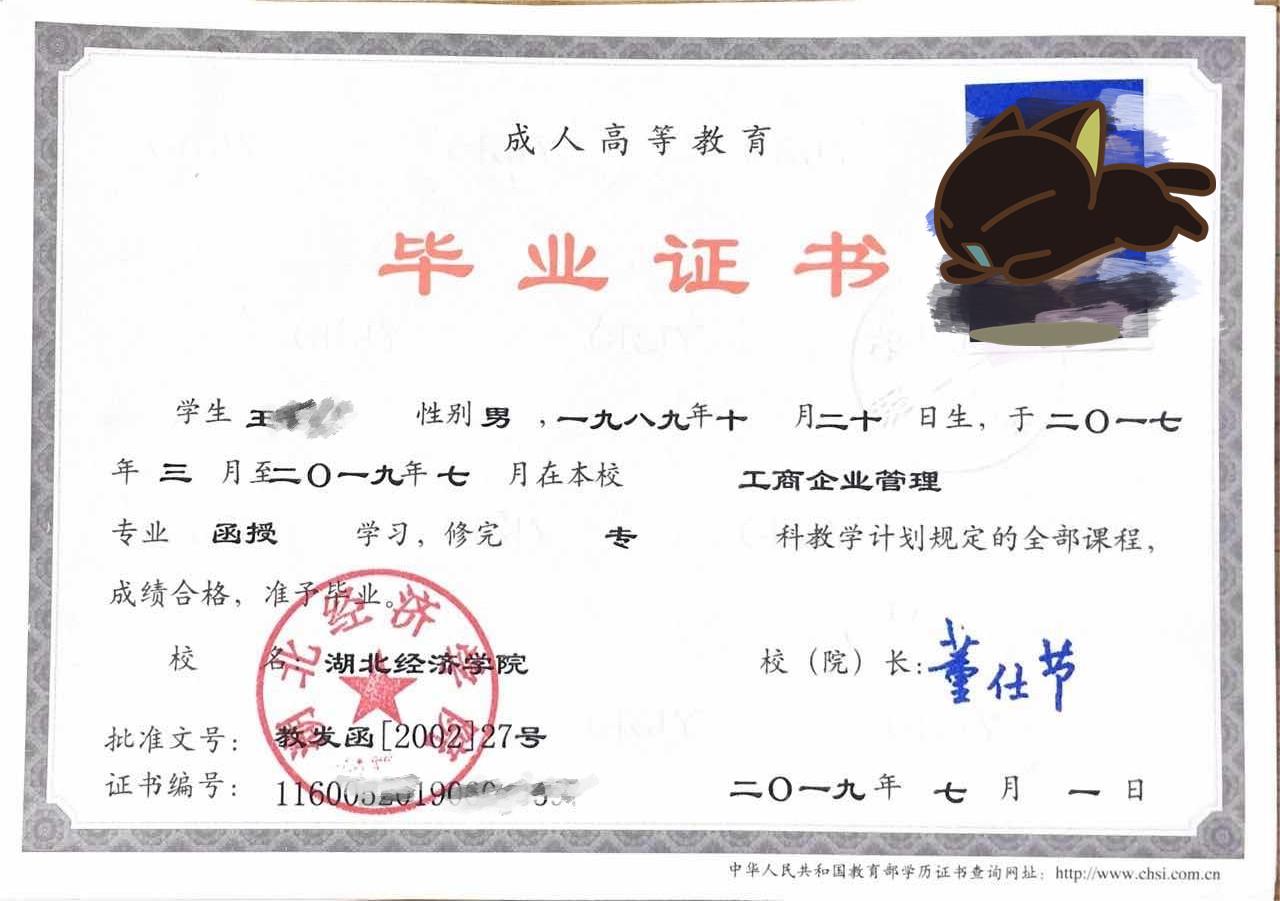 成人高等教育
毕业证书
学生 王 性别 男 ,一九八九年十 月二十 日生, 于 二〇一七
年 三 月至二〇一九年 七 月在本校 工商企业管理
专业 函授 学习, 修完 专 科教学计划规定的全部课程,
成绩合格, 准予毕业。
校 名: 湖北经济学院 校(院)长: 董仕节
湖北经济学院
批准文号: 教发函[2002]27号
证书编号: 11600 2019 二〇一九 年 七 月 一 日
中华人民共和国教育部学历证书查询网址: http://www.chsi.com.cn